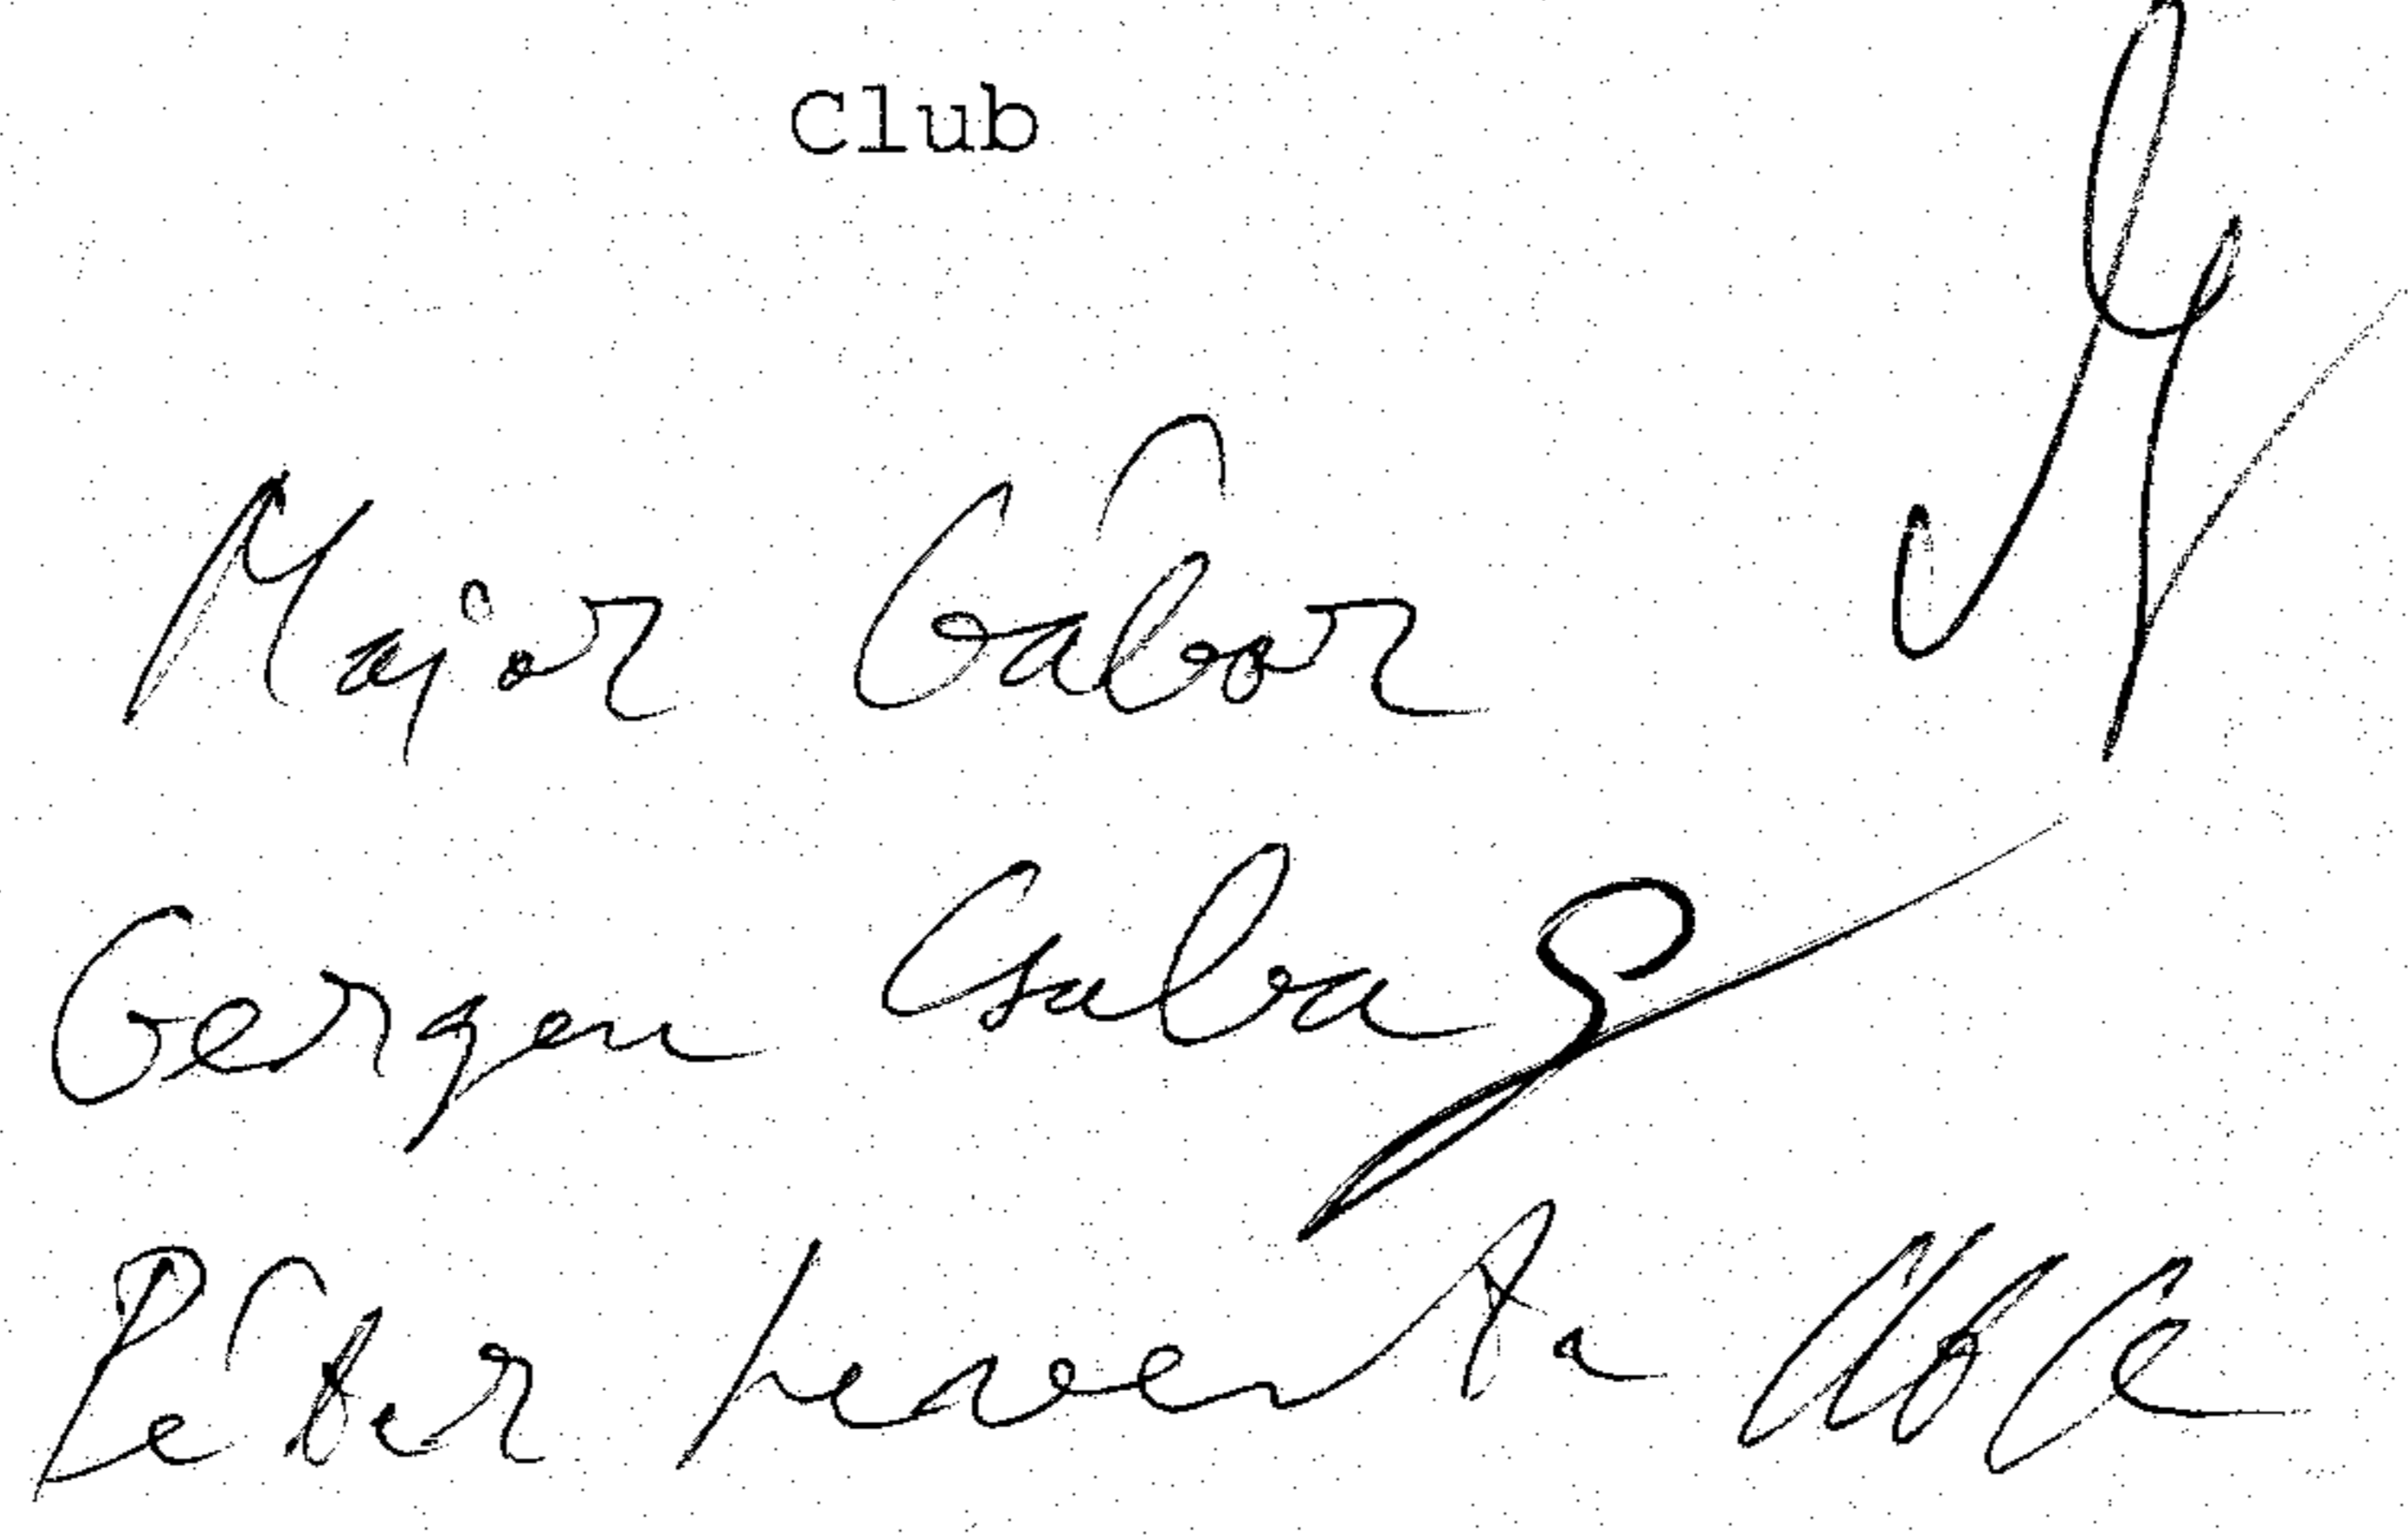 Club
Major Gábor
Gergen Csaba
Péter Levente